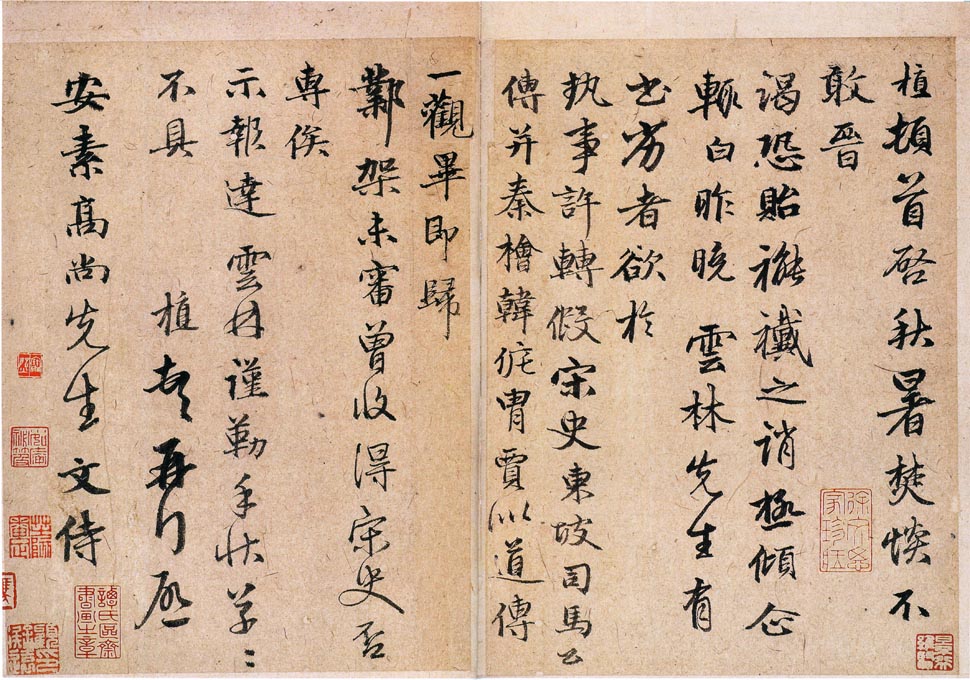 植頓首啓秋暑焚惔不
敢晉
謁恐貽褦襶之誚極傾企
輒白昨晚雲林先生有
書劣者欲於
執事許轉假宋史東坡司馬公
傳并秦檜韓侂胄賈似道傳
一觀畢即歸
鄴架未審曾收得宋史否
專俟
示報達雲林謹勒手狀草〻
不具 植頓首再行啓
安素高尚先生文侍